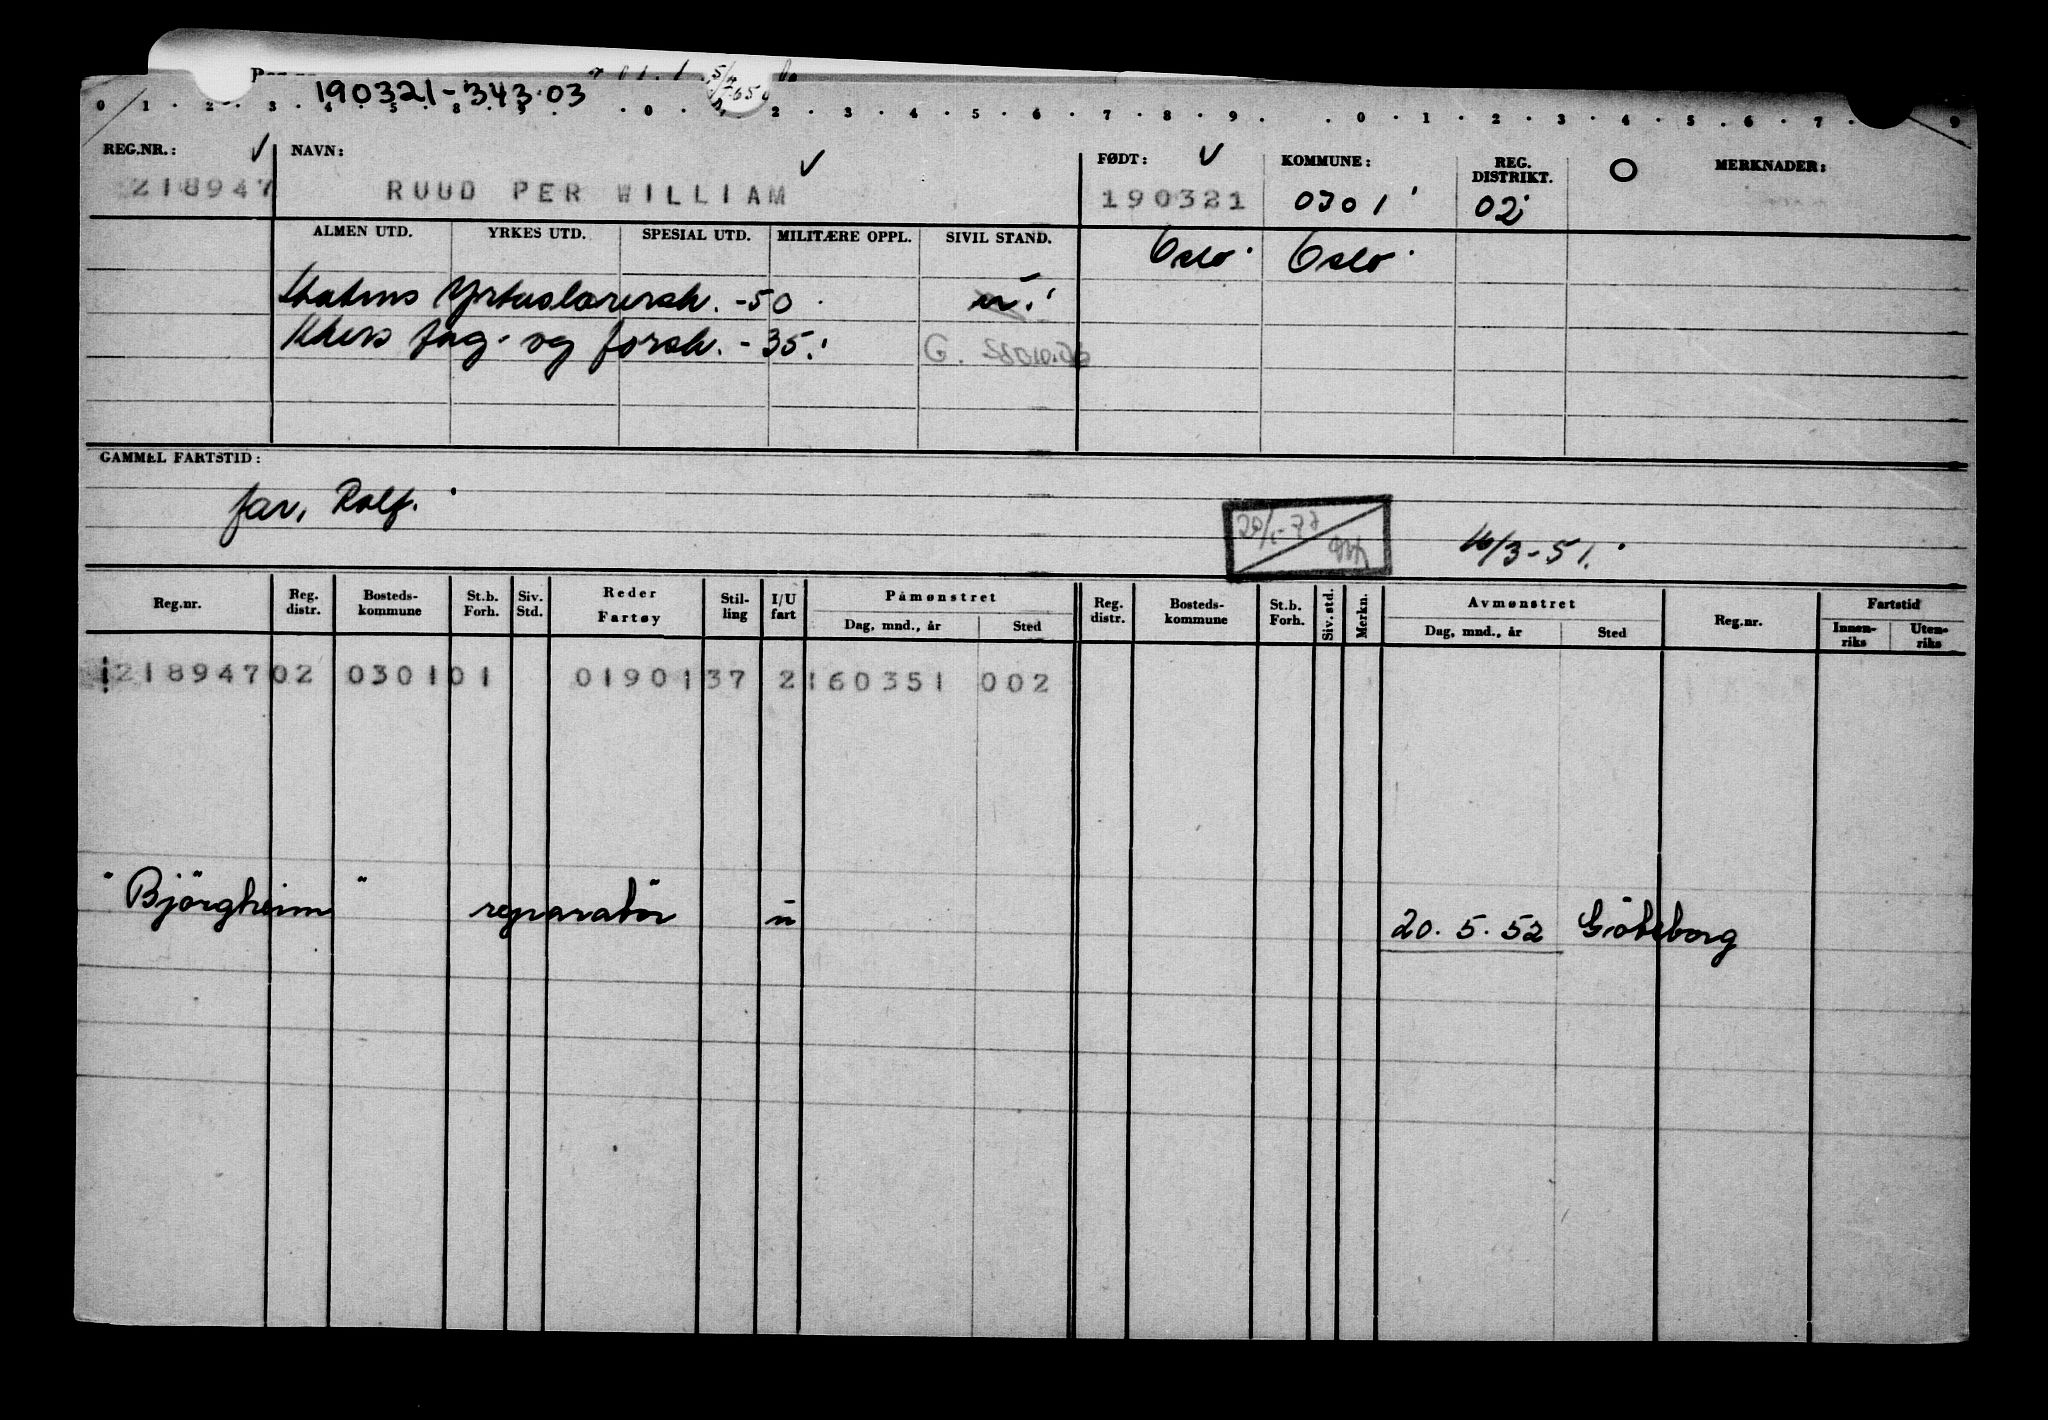 190321-343.03
0 1 2 3 4 5 8 9 0 2 3 4 5 6 7 8 9 0 1 2 3 4 5 6 7 9
REG.NR.: NAVN: FØDT: KOMMUNE: REG. DISTRIKT. O MERKNADER:
218947 RUUD PER WILLIAM 190321 0301 02
ALMEN UTD. YRKES UTD. SPESIAL UTD. MILITÆRE OPPL. SIVIL STAND. Oslo Oslo
Statens Yrkeslærersk. -50 u.
fag- og forsk. -35. G.
GAMMEL FARTSTID:
far, Rolf.
16/3-51.
Reg.nr. Reg. distr. Bosteds-kommune St.b. Forh. Siv. Std. Reder Fartøy Stil-ling I/U fart Påmønstret Dag, mnd., år Sted Reg. distr. Bosteds-kommune St.b. Forh. Siv. std. Merkn. Avmønstret Dag, mnd., år Sted Reg.nr. Fartstid Innen-riks Uten-riks
218947 02 0301 01 01901 37 2 160351 002
"Björgheim" reparatör u 20.5.52 Göteborg